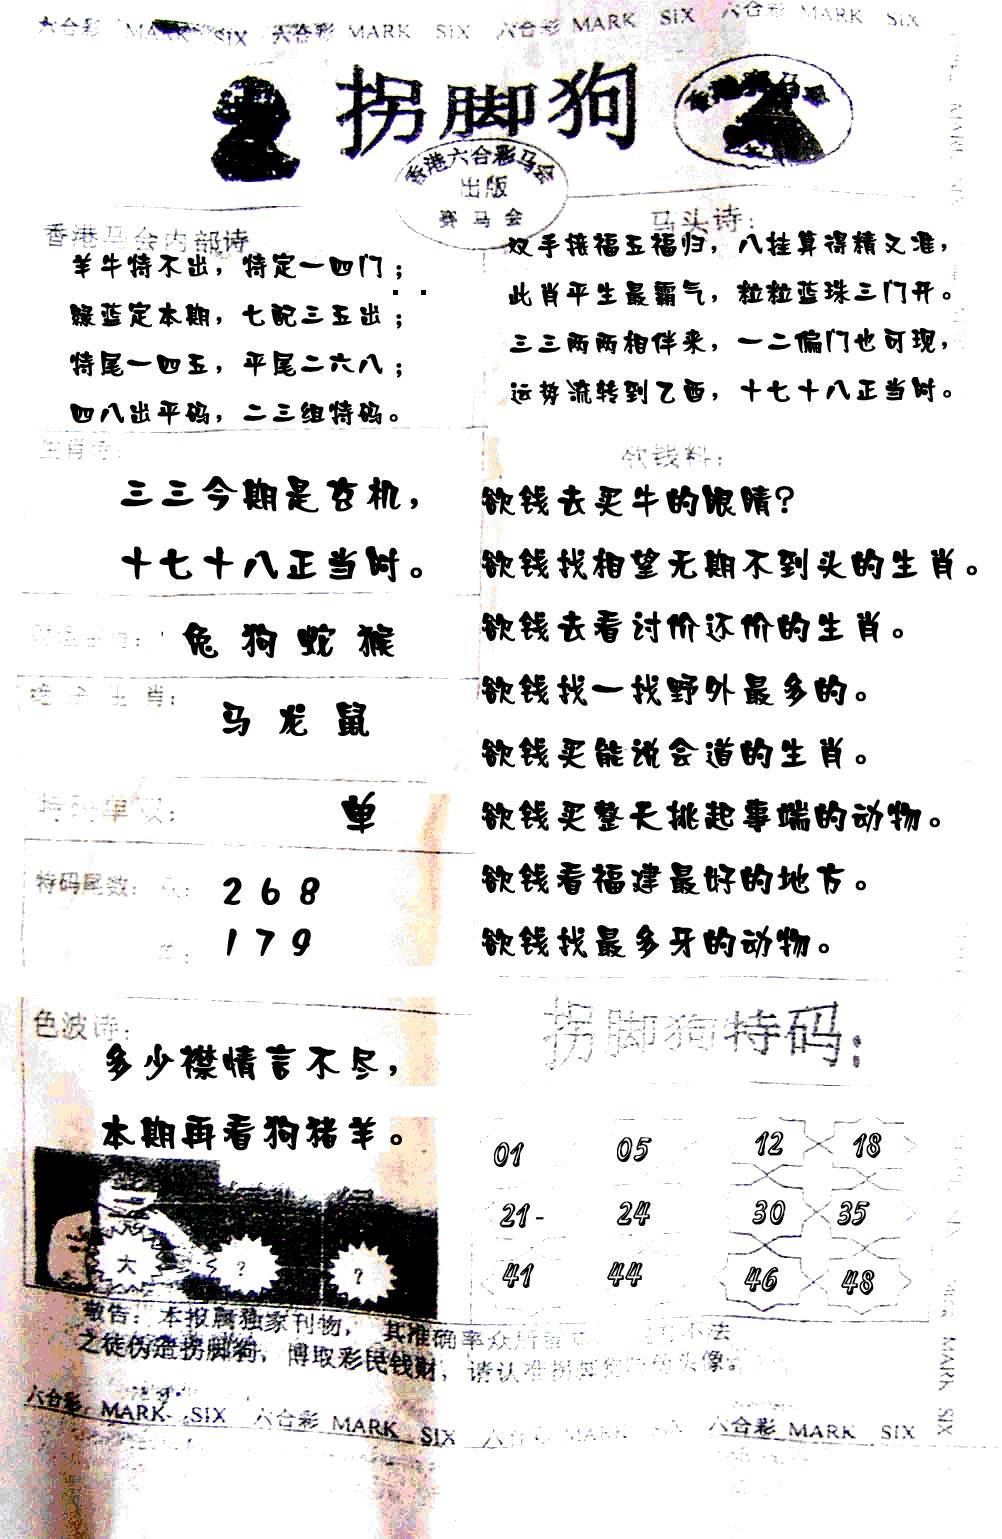 六合彩 MARK SIX 六合彩 MARK SIX 六合彩 MARK SIX 六合彩 MARK SIX
拐脚狗
香港六合彩马会
出版
赛马会
香港马会内部诗
羊牛特不出，特定一四门；
绿蓝定本期，七配三五出；
特尾一四五，平尾二六八；
四八出平码，二三组特码。
马头诗：
双手接福五福归，八挂算得精又准，
此肖平生最霸气，粒粒蓝珠三门开。
三三两两相伴来，一二偏门也可现，
运势流转到乙酉，十七十八正当时。
生肖诗：
三三今期是玄机，
十七十八正当时。
兔 狗 蛇 猴
绝杀生肖：
马 龙 鼠
特码单双：
单
特码尾数：
2 6 8
1 7 9
欲钱料：
欲钱去买牛的眼睛?
欲钱找相望无期不到头的生肖。
欲钱去看讨价还价的生肖。
欲钱找一找野外最多的。
欲钱买能说会道的生肖。
欲钱买整天挑起事端的动物。
欲钱看福建最好的地方。
欲钱找最多牙的动物。
色波诗：
多少襟情言不尽，
本期再看狗猪羊。
大 ? ?
拐脚狗特码：
01 05 12 18
21- 24 30 35
41 44 46 48
敬告：本报属独家刊物，其准确率众所 不法
之徒伪造拐脚狗，博取彩民钱财，请认准拐脚 头像。
六合彩 MARK SIX 六合彩 MARK SIX 六合彩 MARK 六合彩 MARK SIX
MARK SIX